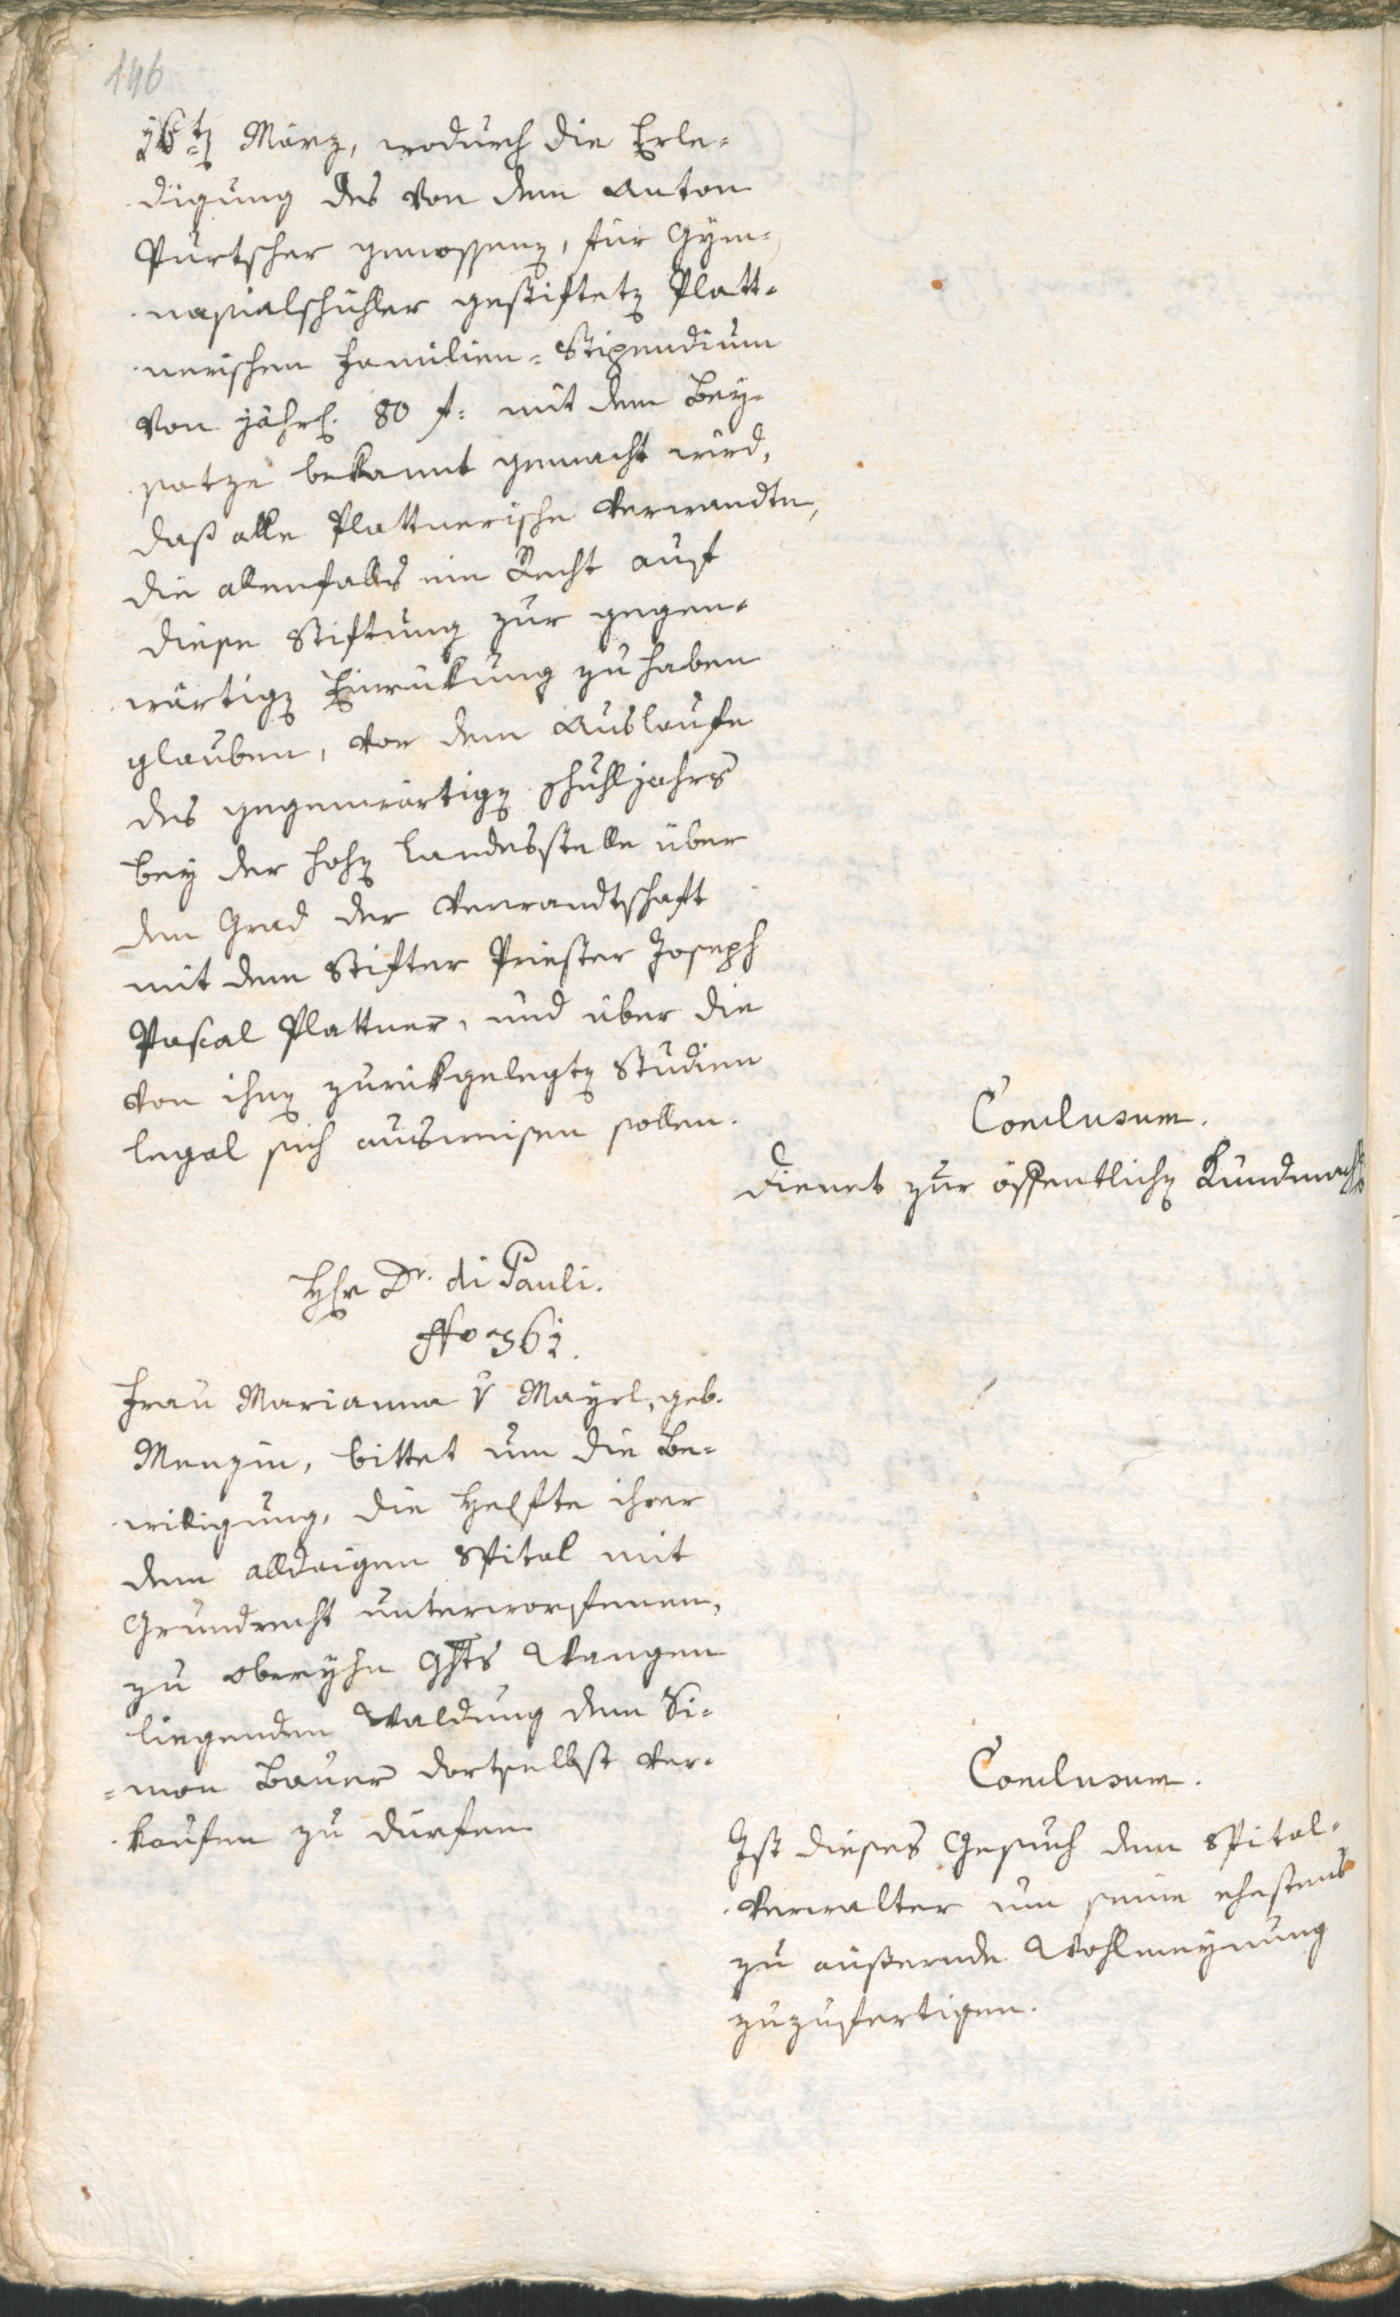 146
16t. März, wodurch die Erle-
digung des von dem Anton
Purtscher genossenen, für Gym-
nasialschühler gestifteten Platt-
nerischen Familien-Stipendium
von jährl. 80 f: mit dem Bey-
satze bekannt gemacht wird,
daß alle Plattnerische Verwandte,
die allenfalls ein Recht auf
diese Stiftung zur gegen-
wärtigen Einrükung zu haben
glauben, vor dem Auslaufe
des gegenwärtigen Schuhljahrs
bey der hohen Landesstelle über
den Grad der Verwandtschaft
mit dem Stifter Priester Joseph
Pascal Plattner, und über die
von ihnen zurükgelegten Studien
legal sich ausweisen sollen.
Conclusum.
Dienet zur öffentlichen Kundmach
Hr Dr. di Pauli.
No 361.
Frau Marianna v Mayrl, geb.
Menzin, bittet um die Be-
willigung, die Helfte ihrer
dem alldaigen Spital mit
Grundrecht unterworfenen,
zu Oberyhn Ghts Wangen
liegenden Waldung dem Si-
=mon Bauer dortselbst ver-
kaufen zu dürfen
Conclusum.
Ist dieses Gesuch dem Spital-
verwalter um seine ehestens
zu äußernde Wohlmeynung
zuzufertigen.